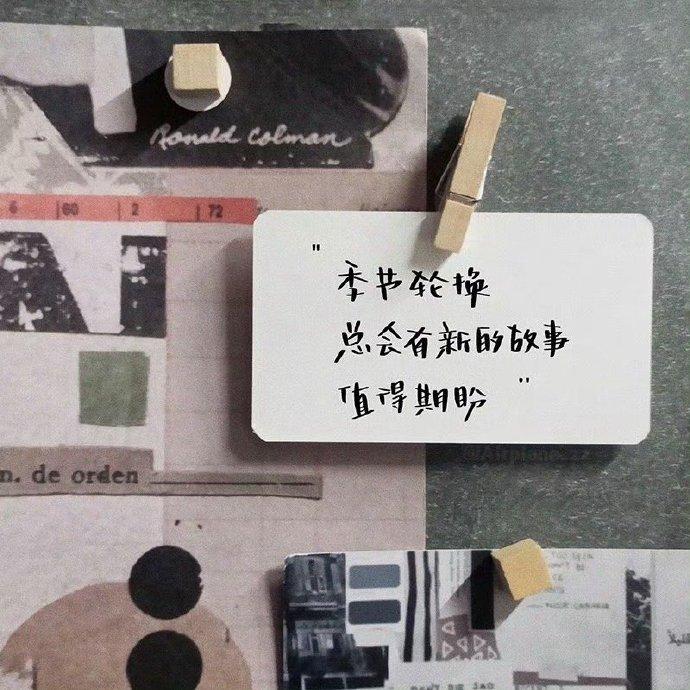 Ronald Colman
6 60 2 72
"季节轮换
总会有新的故事
值得期盼"
@Airplane.zz
n. de orden